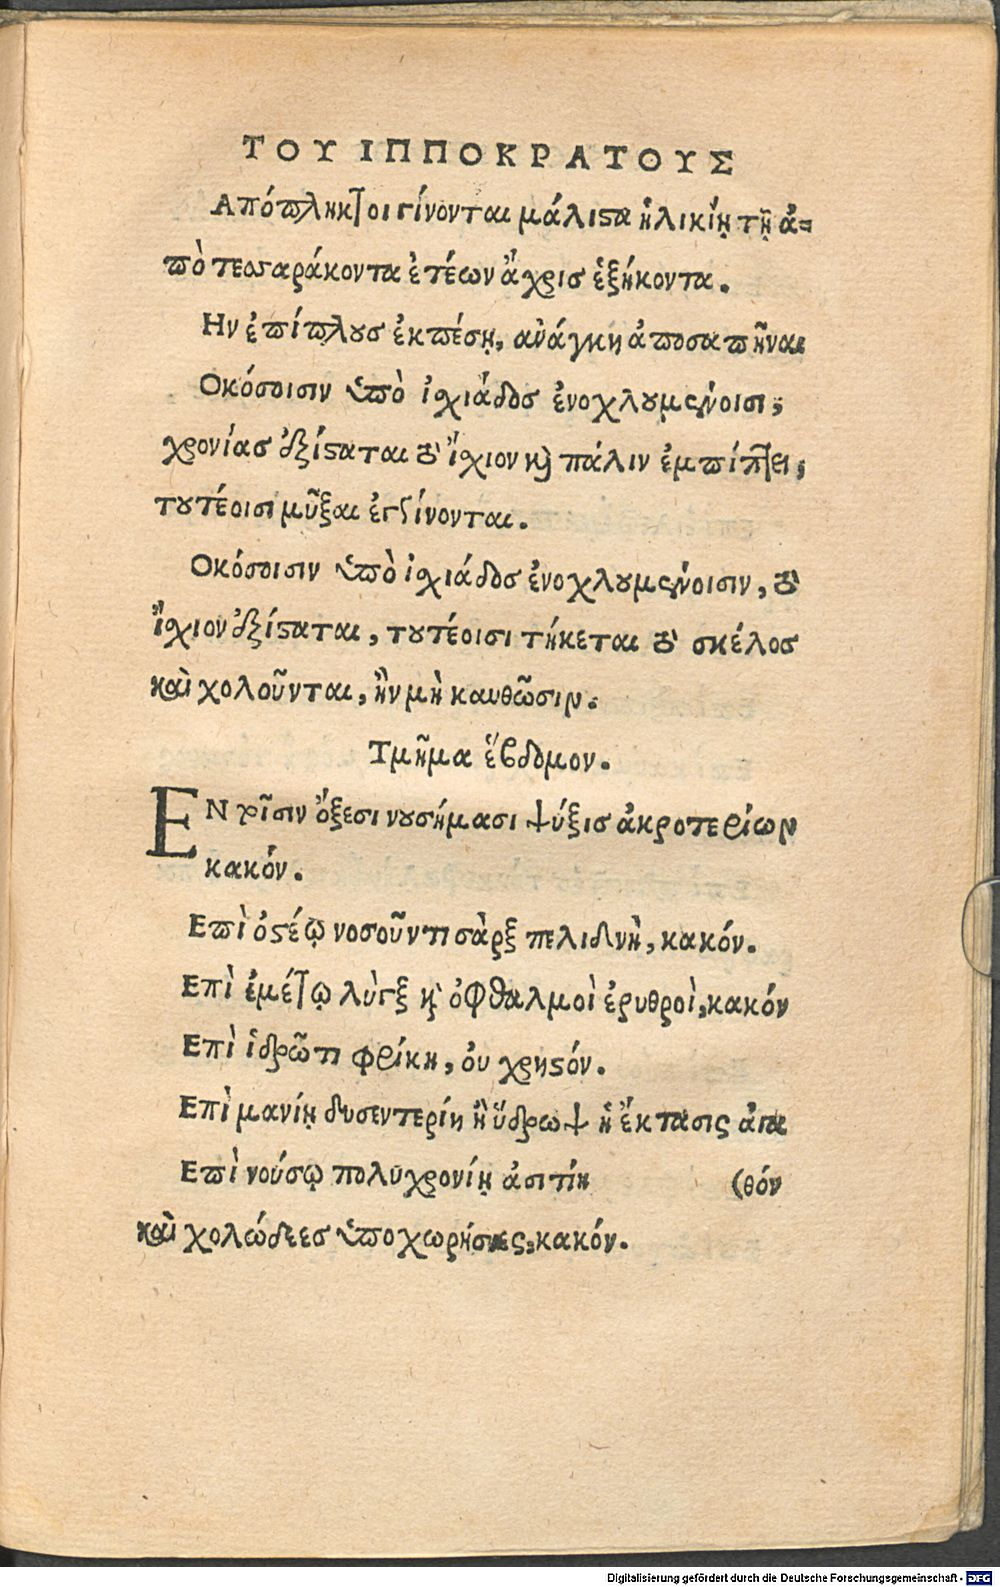 ΤΟΥ ΙΠΠΟΚΡΑΤΟΥΣ
Απόπληκτοι γίνονται μάλιϛα ἡλικίῃ τῇ ἀ-
πὸ τεσσαράκοντα ἐτέων ἄχρισ ἑξήκοντα.
Ην ἐπίπλουσ ἐκπέσῃ, ἀνάγκη ἀποσαπῆναι
Οκόσοισιν ὑπὸ ἰχιάδοσ ἐνοχλουμένοισι;
χρονίασ ἐξίϛαται τὸ ἴχιον καὶ πάλιν ἐμπίπτει,
τουτέοισι μῦξαι ἐγγίνονται.
Οκόσοισιν ὑπὸ ἰχιάδοσ ἐνοχλουμένοισιν, τὸ
ἴχιον ἐξίϛαται, τουτέοισι τήκεται τὸ σκέλοσ
καὶ χολοῦνται, ἢν μὴ καυθῶσιν.
Τμῆμα ἕβδομον.
ΕΝ ρῖσιν ὄξεσι νουσήμασι ψύξισ ἀκροτερίων
κακόν.
Επὶ ὀϛέῳ νοσοῦντι σὰρξ πελιδνὴ, κακόν.
Επὶ ἐμέτῳ λὺγξ καὶ ὀφθαλμοὶ ἐρυθροὶ, κακόν
Επὶ ἱδρῶτι φρίκη, ὀυ χρηϛόν.
Επὶ μανίῃ δυσεντερίη ἢ ὕδρωψ ἡ ἔκτασις ἀγα
Επὶ νούσῳ πολυχρονίῃ ἀσιτίη (θόν
καὶ χολώδεεσ ὑποχωρήσιες, κακόν.
Digitalisierung gefördert durch die Deutsche Forschungsgemeinschaft - DFG